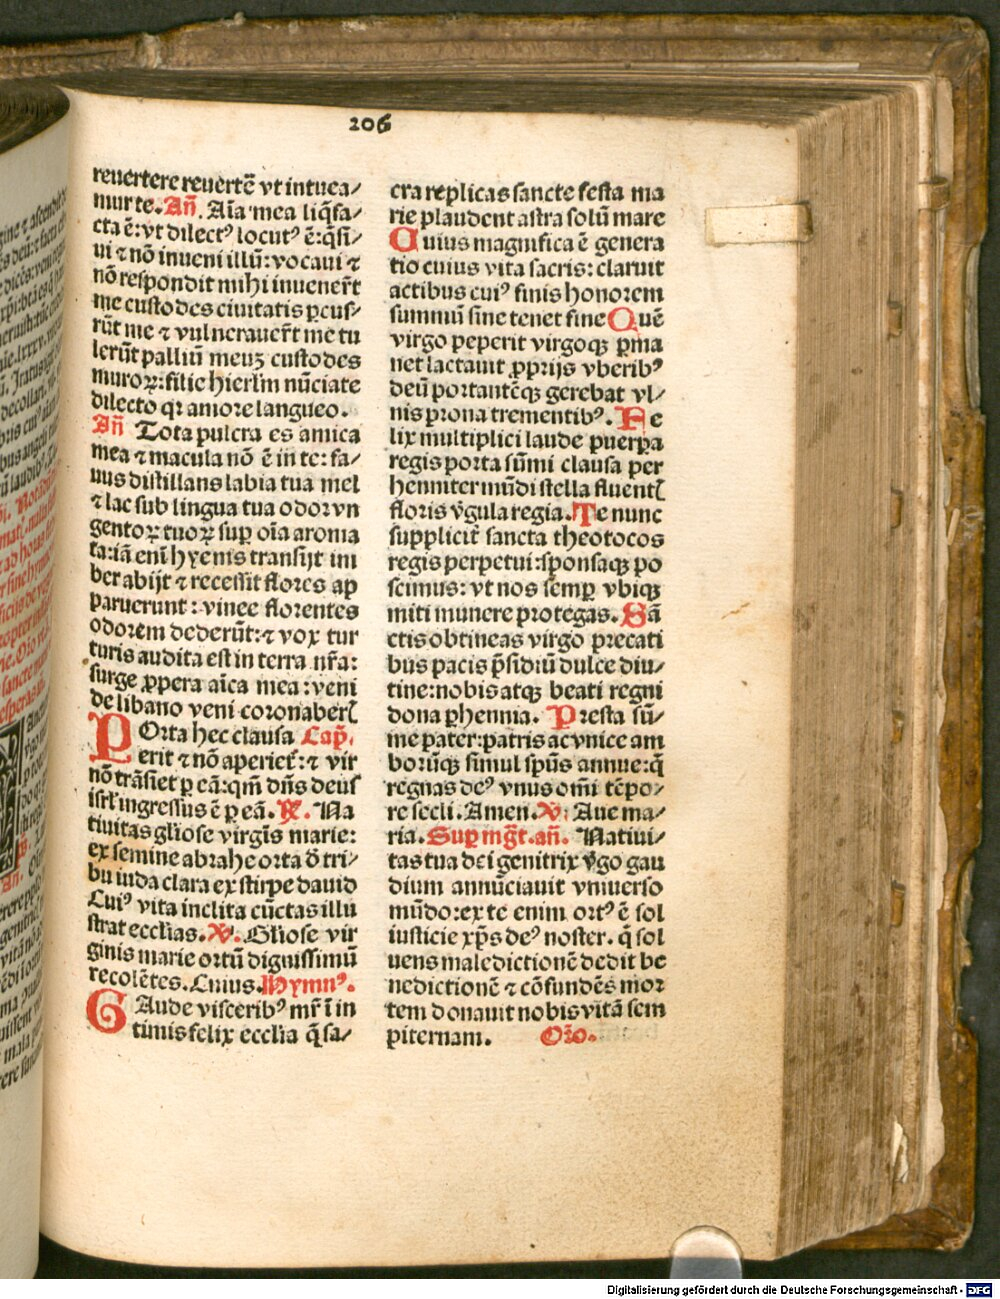 206
reuertere reuertē vt intuea/
mur te. Añ. Aīa mea liq̄fa/
cta ē: vt dilectꝰ locutꝰ ē: q̄si/
ui ⁊ nō inueni illū: vocaui ⁊
nō respondit mihi inuener̄t
me custodes ciuitatis ꝑcus/
rūt me ⁊ vulnerauer̄t me tu
lerūt palliū meuʒ custodes
muroꝝ: filie hierl̄m nūciate
dilecto qꝛ amore langueo.
Añ Tota pulcra es amica
mea ⁊ macula nō ē in te: fa/
uus distillans labia tua mel
⁊ lac sub lingua tua odor vn
gentoꝝ tuoꝝ suꝑ oīa aroma
ta: iā enī hyems transijt im
ber abijt ⁊ recessit flores ap
paruerunt: vinee florentes
odorem dederūt: ⁊ vox tur
turis audita est in terra nr̄a:
surge ꝓpera aīca mea: veni
de libano veni coronaber̄
POrta hec clausa Cap̄.
erit ⁊ nō aperiet̄: ⁊ vir
nō trāsiet ꝑ eā: qm̄ dn̄s deus
isrl̄ ingressus ē ꝑ eā. ℟. Na
tiuitas gl̄iose virgīs marie:
ex semine abrahe orta d̄ tri/
bu iuda clara ex stirpe dauid
Cuiꝰ vita inclita cūctas illu
strat eccl̄ias. ℣. Gl̄iose vir
ginis marie ortū dignissimū
recolētes. Cuius. Hymnꝰ.
GAude visceribꝰ mr̄ i in
timis felix eccl̄ia q̄ sa/
cra replicas sancte festa ma
rie plaudent astra solū mare
Cuius magnifica ē genera
tio cuius vita sacris: claruit
actibus cuiꝰ finis honorem
summū sine tenet fine Quē
virgo peperit virgoqꝫ ꝑma
net lactauit ꝓprijs vberibꝰ
deū portantēqꝫ gerebat vl/
nis prona trementibꝰ. Fe
lix multiplici laude puerꝑa
regis porta sūmi clausa per
henniter mūdi stella fluent̄
floris v̄gula regia. Te nunc
supplicit̄ sancta theotocos
regis perpetui: sponsaqꝫ po
scimus: vt nos semꝑ vbiqꝫ
miti munere protegas. Sā
ctis obtineas virgo precati
bus pacis p̄sidiū dulce diu/
tine: nobis atqꝫ beati regni
dona ꝑhennia. Presta sū/
me pater: patris ac vnice am
borūqꝫ simul sp̄us annue: q̄
regnas deꝰ vnus omī tēpo/
re secli. Amen. ℣. Aue ma/
ria. Suꝑ mḡt. añ. Natiui/
tas tua dei genitrix v̄go gau
dium annūciauit vniuerso
mūdo: ex te enim ortꝰ ē sol
iusticie xp̄s deꝰ noster. q̄ sol
uens maledictionē dedit be
nedictionē ⁊ cōfundēs mor
tem donauit nobis vitā sem
piternam. Or̄o.
Digitalisierung gefördert durch die Deutsche Forschungsgemeinschaft - DFG